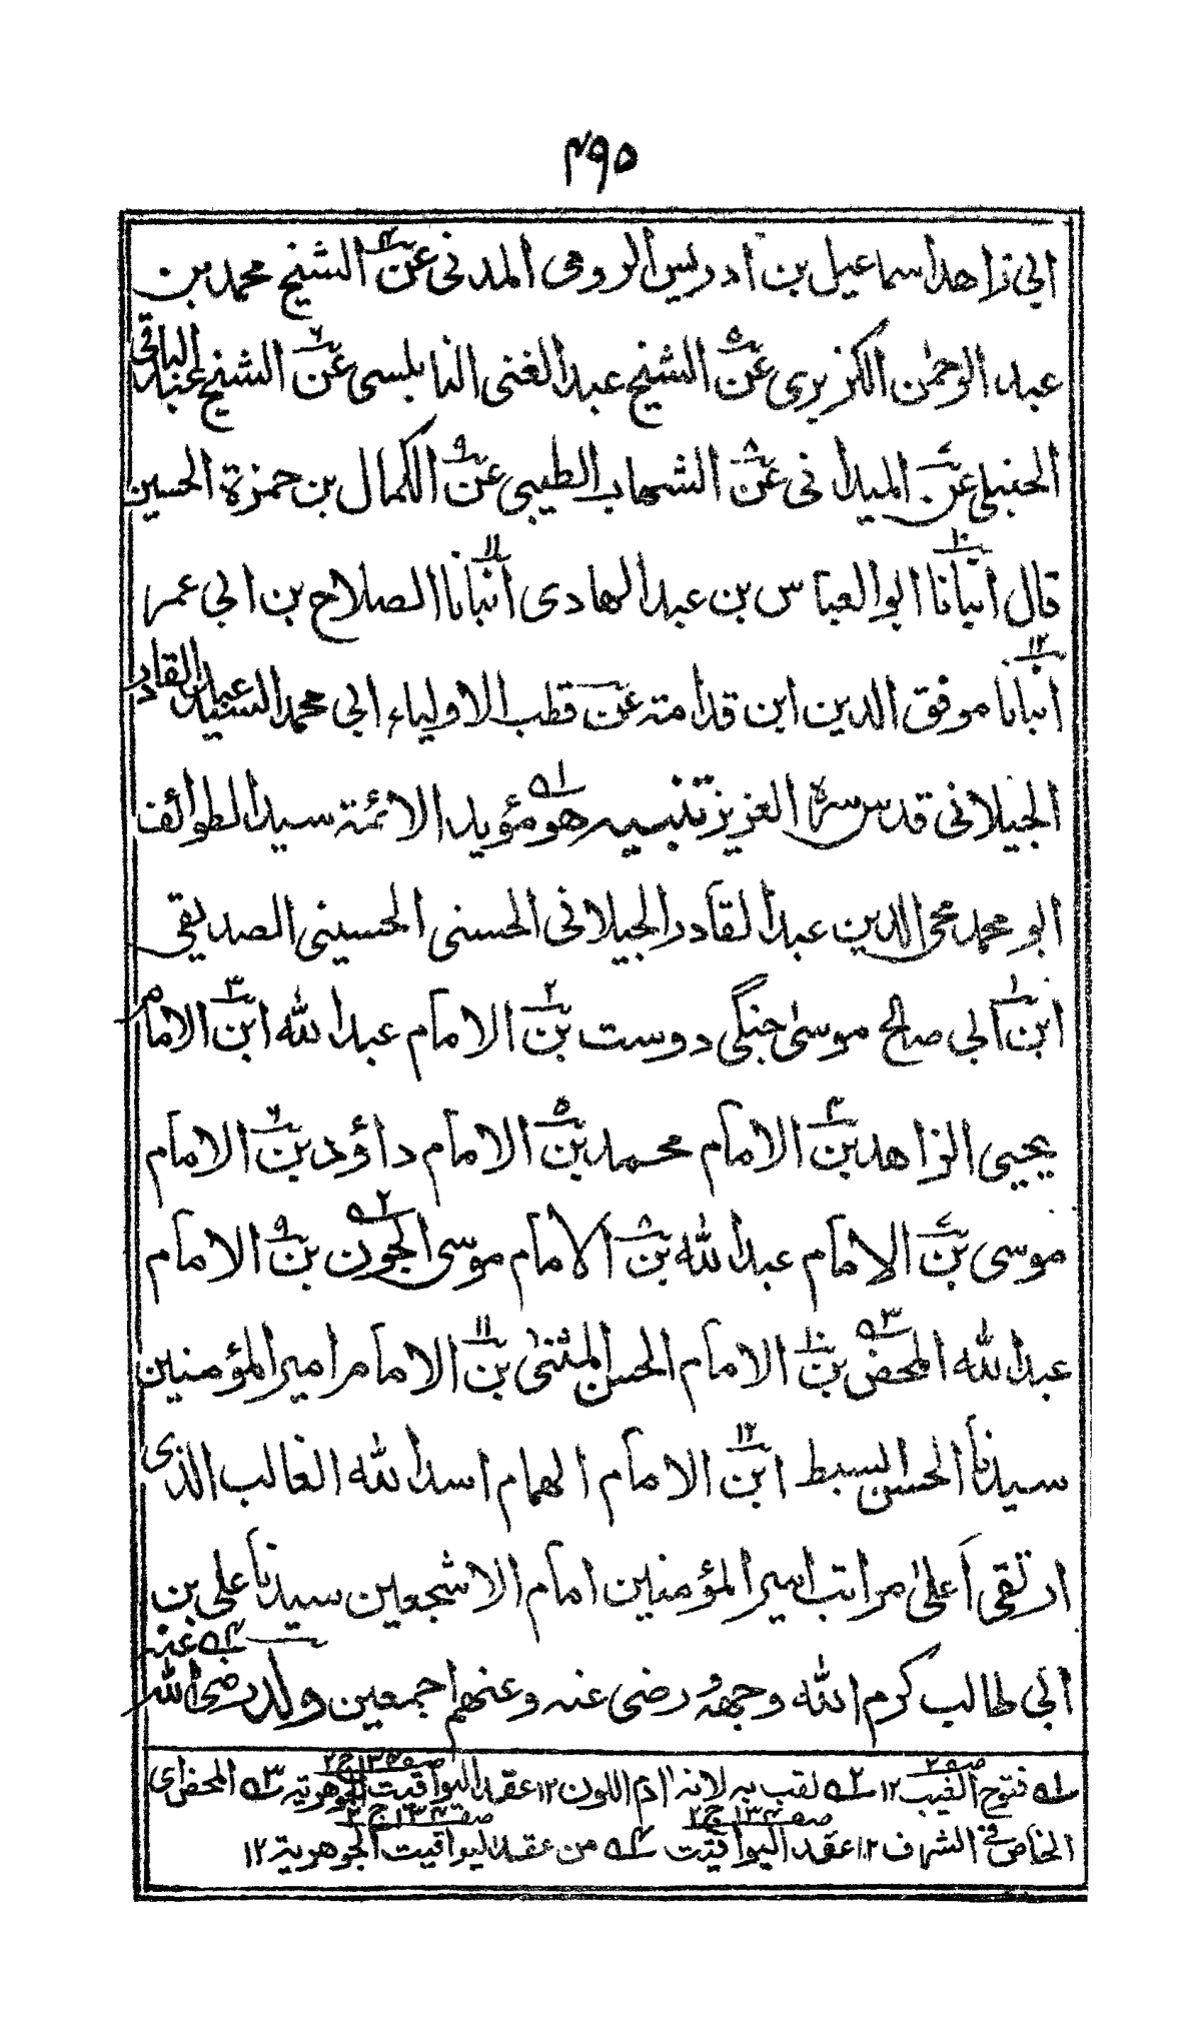 ۴۹۵
ابی زاهد اسماعیل بن ادریس الرومی المدنی عن۴ الشیخ محمد بن
عبد الرحمٰن الکزبری عن۵ الشیخ عبد الغنی النابلسی عن۶ الشیخ عبد الباقی
الحنبلی عن۷ المیدانی عن۸ الشهاب الطیبی عن۹ الکمال بن حمزة الحسین
قال انبانا۱۰ ابو العباس بن عبد الهادی انبانا۱۱ الصلاح بن ابی عمر
انبانا۱۲ موفق الدین ابن قدامته عن قطب الاولیاء ابی محمد السید عبد القادر
الجیلانی قدس سره العزیز تنبیه هو۱ه مؤید الائمة سید الطوائف
ابو محمد محی الدین عبد القادر الجیلانی الحسنی الحسینی الصدیقی
ابن۱ ابی صالح موسیٰ جنگی دوست بن۲ الامام عبد الله ابن۳ الامام
یحیی الزاهد بن۴ الامام محمد بن۵ الامام داؤد بن۶ الامام
موسی بن۷ الامام عبد الله بن۸ الامام موسی الجون۲ه بن۹ الامام
عبد الله المحض۳ه بن۱۰ الامام الحسن المثنیٰ بن۱۱ الامام امیر المؤمنین
سیدنا الحسن السبط ابن۱۲ الامام الهمام اسد الله الغالب الذی
ارتقی اعلیٰ مراتب امیر المؤمنین امام الاشجعین سیدنا علی بن
ابی طالب کرم الله وجهه و رضی عنه وعنهم اجمعین ولد۴ه رضی الله عنه
۱ه فتوح الغیب صه۲ ۱۲ ۲ه لقب به لانه ادم اللون ۱۲ عقد الیواقیت الجوهریه صه۱۳۵ ج۲ ۳ه المحض ای
الخاص فی الشرف ۱۲ عقد الیواقیت صه۱۳۴ ج۲ ۴ه من عقد الیواقیت الجوهریة صه۱۳۴ ج۲ ۱۲